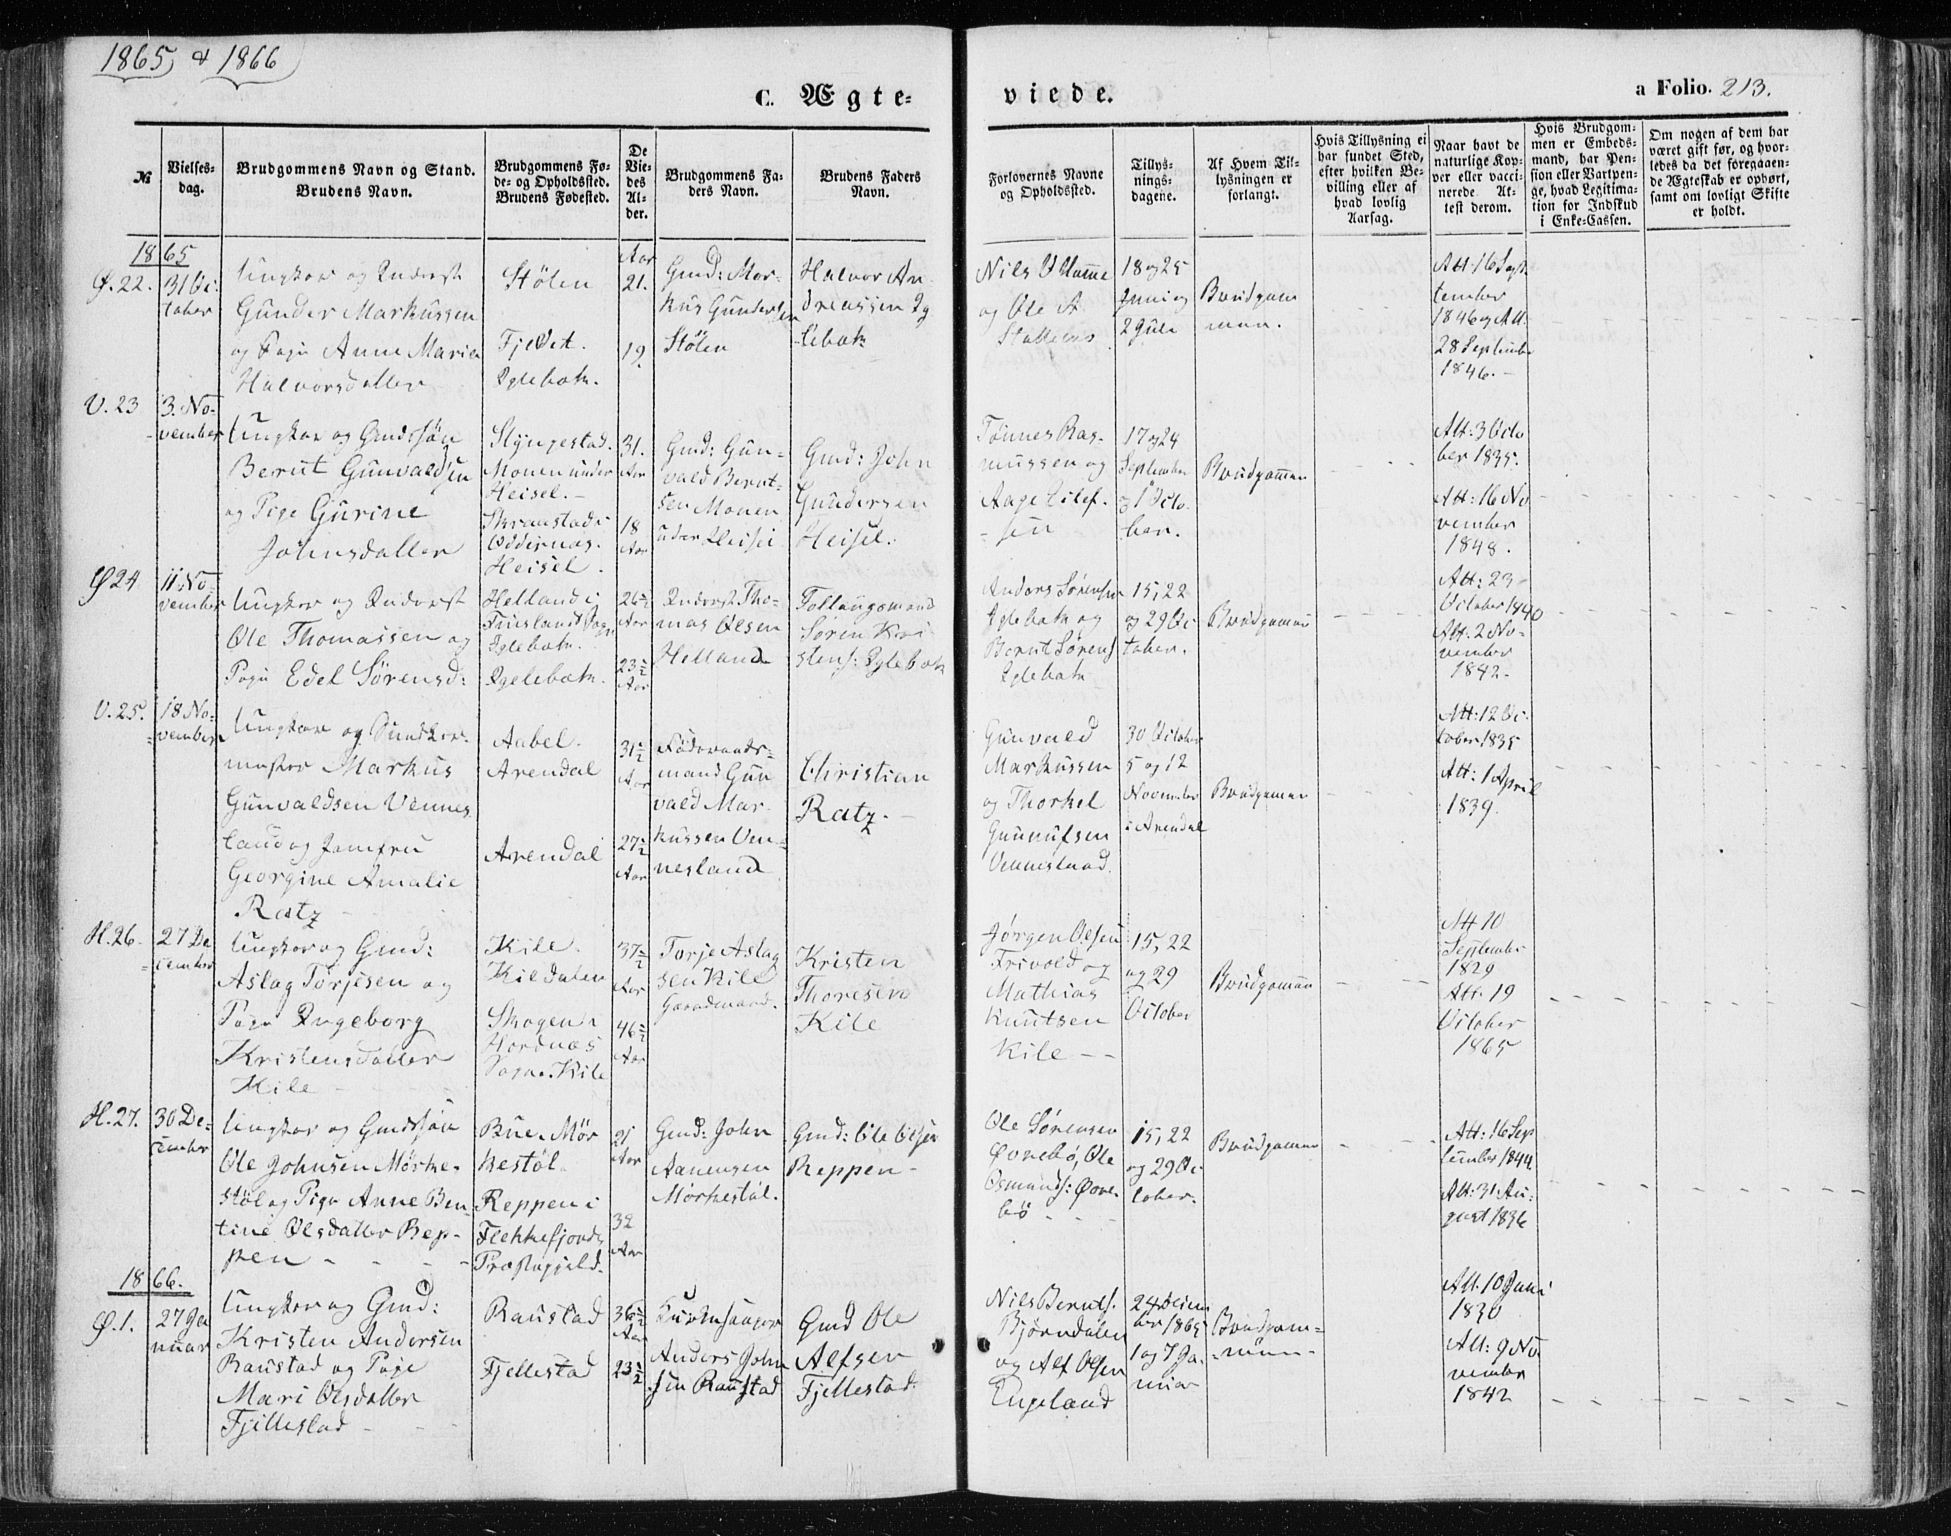 1865 & 1866
C. Ægte-
viede.
a Folio. 213.
№
Vielses-
dag.
Brudgommens Navn og Stand.
Brudens Navn.
Brudgommens Fø-
de- og Opholdssted.
Brudens Fødested.
De
Vie-
des
Al-
der.
Brudgommens Fa-
ders Navn.
Brudens Faders
Navn.
Forlovernes Navne
og Opholdssted.
Tillys-
nings-
dagene.
Af Hvem Til-
lysningen er
forlangt.
Hvis Tillysning ei
har fundet Sted,
efter hvilken Be-
villing eller af
hvad lovlig
Aarsag.
Naar havt de
naturlige Kop-
per eller vacci-
nerede. At-
test derom.
Hvis Brudgom-
men er Embeds-
mand, har Pen-
sion eller Vartpen-
ge, hvad Legitima-
tion for Indskud
i Enke-Cassen.
Om nogen af dem har
været gift før, og hvor-
ledes da det foregaaen-
de Ægteskab er ophørt,
samt om lovligt Skifte
er holdt.
1865
Ø. 22.
31 Oc-
tober
Ungkar og Inderst
Gunder Markussen
og Pige Anne Marie
Halvorsdatter
Stølen
Iglebæk.
Aar
21.
19.
Gmd: Mar-
kus Gundersen
Stølen
Halvor An-
dreassen Ig-
lebæk
og Ole A.
18 og 25
Juni og
2 Juli
Brudgom
men.
Att: 16 Sep-
tember
1846 og Att.
28 September
1846.
V. 23
3. No-
vember
Ungkar og Gmdssøn
Berut Gunvaldsen
og Pige Gurine
Johnsdatter
Monen under
Heisel.
Oddernæs.
Heisel.
31.
Aar
18
Aar
Gmd: Gun-
vald Berut-
sen Monen
under Heisel
Gmd: John
Gundersen
Heisel.
Tønnes Ras-
mussen og
Aage Eilef-
sen
17 og 24
September
og 1 Octo-
ber.
Brudgommen
Att: 3 Octo
ber 1835.
Att: 16 No
vember
1848.
Ø 24
11 No-
vember
Ungkar og Inderst
Ole Thomassen og
Pige Edel Sørensd:
Helland i
Iglebæk.
Iglebæk.
26½
Aar
23½
Aar
Inderst Tho-
mas Olsen
Helland
Søren Kri
stens: Iglebæk
Anders Sørensen
Iglebæk og
Berut Sørens
Iglebæk
15, 22
og 29 Oc
tober.
Brudgommen
Att: 23
October 1840
Att. 2 No-
vember
1842.
V. 25.
18 No-
vember
Ungkar og
Markus
Gunvaldsen Vennes
land og Jomfru
Georgine Amalie
Ratz
Aabel.
Arendal
Arendal
31½
Aar
27½
Aar
Føderaads-
mand Gun
vald Mar-
kussen Ven-
nesland
Christian
Ratz.
Gunvald
Markussen
og Thorkel
Gunnufsen
Vennesland
30 October
5 og 12
November
i Arendal
Brudgommen
Att: 12 Oc
tober 1835
Att: 1 April
1839.
H. 26.
27 De
cember
Ungkar og Gmd:
Aslag Torjesen og
Pige Ingeborg
Kristensdatter
Kile
Kile.
Kiledalen
Skogen i
Sogn. Kile
37½
Aar
46½
Aar
Torje Aslag
sen Kile
Gaardmand.
Kristen
Thoresen
Kile
Jørgen Olsen
Frivold og
Mathias
Knutsen
Kile
15, 22
og 29
October
Brudgommen
Att 10
September
1829
Att. 19
October
1865
H. 27.
30 De-
cember
Ungkar og Gmdssøn
Ole Johnsen Mørke-
støl og Pige Anne Ben-
tine Olsdatter Rep-
pen
Bue. Mør
kestøl.
Reppen i
Flekkefjords
Præstegjeld.
21
Aar
32
Aar
Gmd: John
Aanensen
Mørkestøl.
Gmd: Ole Olsen
Reppen
Ole Sørensen
Øvrebø, Ole
Osmunds: Øvre-
bø
15, 22
og 29 Oc
tober.
Brudgommen
Att: 16 Sep
tember 1844
Att: 31 Au-
gust 1836
1866.
Ø. 1.
27 Ja
nuar
Ungkar og Gmd:
Kristen Andersen
Raustad og Pige
Mari Olsdatter
Fjellestad
Raustad
Fjellestad
36½
Aar
23½
Kirkesanger
Anders John
sen Raustad
Gmd Ole
Alfsen
Fjellestad
Nils Beruts.
Bjørndalen
og Alf Olsen
Engeland
24 Decem
ber 1865
1 og 7 Ja-
nuar
Brudgom-
men
Att. 10 Juni
1830
Att: 9 No
vember
1842